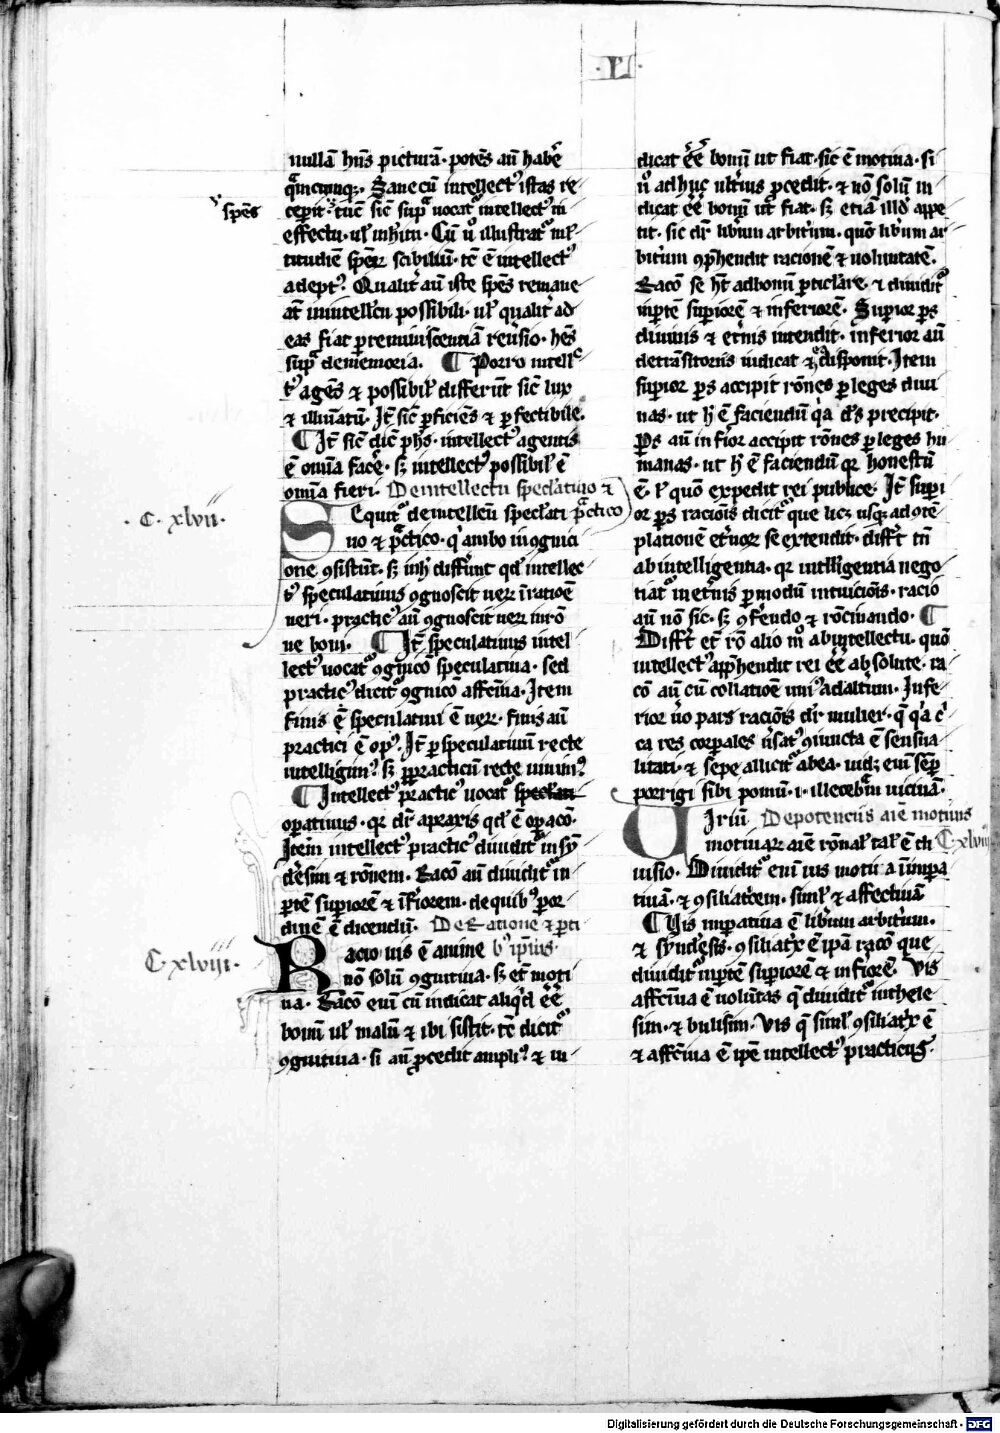 · II ·
nullā hn̄s picturā · potēs au̅ habē
q̄ncunq̢ · Sane cū intellectꝰ istas re
spēs
ceperit · tūc sic̄ supͣ uocatͬ intellectꝰ in
effectu · ul̓ inhītu · Cū u̓ illustratͬ ml̓
titudiē spēꝝ scibiliū · tc̄ ē intellectꝰ
adeptꝰ · Qualit̓ au̅ iste spēs remane
āt inintellc̄u possibili · ul̓ qualit̓ ad
eas fiat p̱ reminiscentiā reūsio · hēs
supͣ de memoria · ¶ Porro intellc̄
tꝰ agēs ⁊ possibil̓ differūt sic̄ lux
⁊ illuīatū · It̄ sic̄ p̱ficiēs ⁊ p̱fectibile ·
¶ It̄ sic̄ dic̄ ph̄s · intellectꝰ agentis
ē oīnia facē · sꝫ intellectꝰ possibil̓ ē
omīa fieri · De intellectu specl̓atiuo ⁊
· C · xlvii ·
Sequitͬ de intellc̄u specl̓ati p̄ctico
uo ⁊ p̄ctico · q̓ ambo in ꝯgnici
one ꝯsistūt · sꝫ inh̓ diffūnt qd̓ intellec
tꝰ speculatiuus ꝯgnoscit ueꝝ ī ratiōe
ueri · practicꝰ au̅ ꝯgnoscit ueꝝ in rō
ne boni · ¶ It̄ speculatiuus intel
lectꝰ uocatͬ ꝯgnicō speculatiua · sed
practicꝰ dicitͬ ꝯgnicō affc̄iua · Item
finis ē speculatiui ē ueꝝ · finis au̅
practici ē opꝰ · It̄ p̱ speculatiuū recte
intelligimꝰ · sꝫ p̱ practicū recte uiuimꝰ
¶ Intellectꝰ practicꝰ uocatͬ specl̓ati
op̱atiuus · qꝛ dr̄ a praxis qd̓ ē op̱acō ·
Item intellectꝰ practicꝰ diuiditͬ in sy̅
d̓esim ⁊ rōnem · Racō au̅ diuiditͬ in
p̱tē sup̱iorē ⁊ īf̓iorem · de quibꝰ p̱ or
dinē ē dicendū · De Ratione ⁊ p̱ti
C xlviii ·
Racio · uis ē anime bꝰ ip̄ius ·
nō solū ꝯgnitiua · sꝫ et̄ moti
ua · Racō eni̅ cū iudicat aliq̓d ēē
bonū ul̓ malū ⁊ ibi sistit · tc̄ dicitͬ
ꝯgnitiua · si au̅ p̱cedit ampliꝰ ⁊ iu
dicat ēē bonū ut fiat · sic ē motiua · si
u̓ adhuc ult̓ius p̱cedit · ⁊ nō solū iu
dicat ēē bonū ut fiat · sꝫ etiā illd̓ appe
tit · sic dr̄ libium arbit̓um · quō lib̓um ar
bit̓um ꝯp̱hendit racionē ⁊ uoluntatē ·
Racō se ht̄ ad bonū p̱ticl̓are · ⁊ diuiditͬ
in p̱tē sup̱iorē ⁊ inferiorē · Sup̱ior p̱s
diuinis ⁊ et̓nis intendit · inferior au̅
de trāsitoriis iudicat ⁊ disponit · Item
sup̱ior p̱s accipit rōnes p̱ leges diui
nas · ut h̓ ē faciendū q̓a d̄s precipit ·
p̱s au̅ inf̓ior accipit rōnes p̱ leges hu
manas · ut h̓ ē faciendū qꝛ honestū
ē · l̓ quō expedit rei publice · It̄ sup̱i
or p̱s raciōis dicitͬ que licꝫ usqꝫ ad ꝯtē
platione et̓noꝝ se extendit · diff̓t tn̄
ab intelligentia · qꝛ intll̓igentia nego
tiatͬ in et̓nis p̱ modū intuiciōis · racio
au̅ nō sic · sꝫ ꝯf̓endo ⁊ rōcinando · ¶
Diff̓t et̄ rō alio mͦ ab intellectu · quō
intellectꝰ app̱hendit rei ēē absolute · ra
cō au̅ cū collatiōe uniꝰ ad alt̓um · Infe
rior u̓o pars raciōis dr̄ mulier · q̄ q̓a c̓
ca res corp̱ales u̓satͬ ꝯiuncta ē sensua
litati · ⁊ sepe allicitͬ ab ea · uidꝫ eui̅ sēp̱
porrigi sibi pomū · i · illecebrā uiciniā ·
C xlviiii
Uiriū De potenciis aīe motiuis
motiuaꝝ aīe rōnal̓ tal̓ ē di
uisio · Diuiditͬ eni̅ uis motiua in īmp̱a
tiuā · ⁊ ꝯsiliatͥcem · simil̓ ⁊ affectiuā
¶ Uis imp̱atiua ē lib̓um arbit̓um ·
⁊ synd̓esis · ꝯsiliatͥx ē ip̄a racō que
diuiditͬ in p̱tē sup̱iorē ⁊ inf̓iorē · Vis
affc̄iua ē uolūtas q̄ diuiditͬ in thele
sim · ⁊ bulisim · Vis q̄ simil̓ ꝯsiliatͥx ē
⁊ affc̄iua ē ip̄e intellectꝰ practicus ·
Digitalisierung gefördert durch die Deutsche Forschungsgemeinschaft - DFG